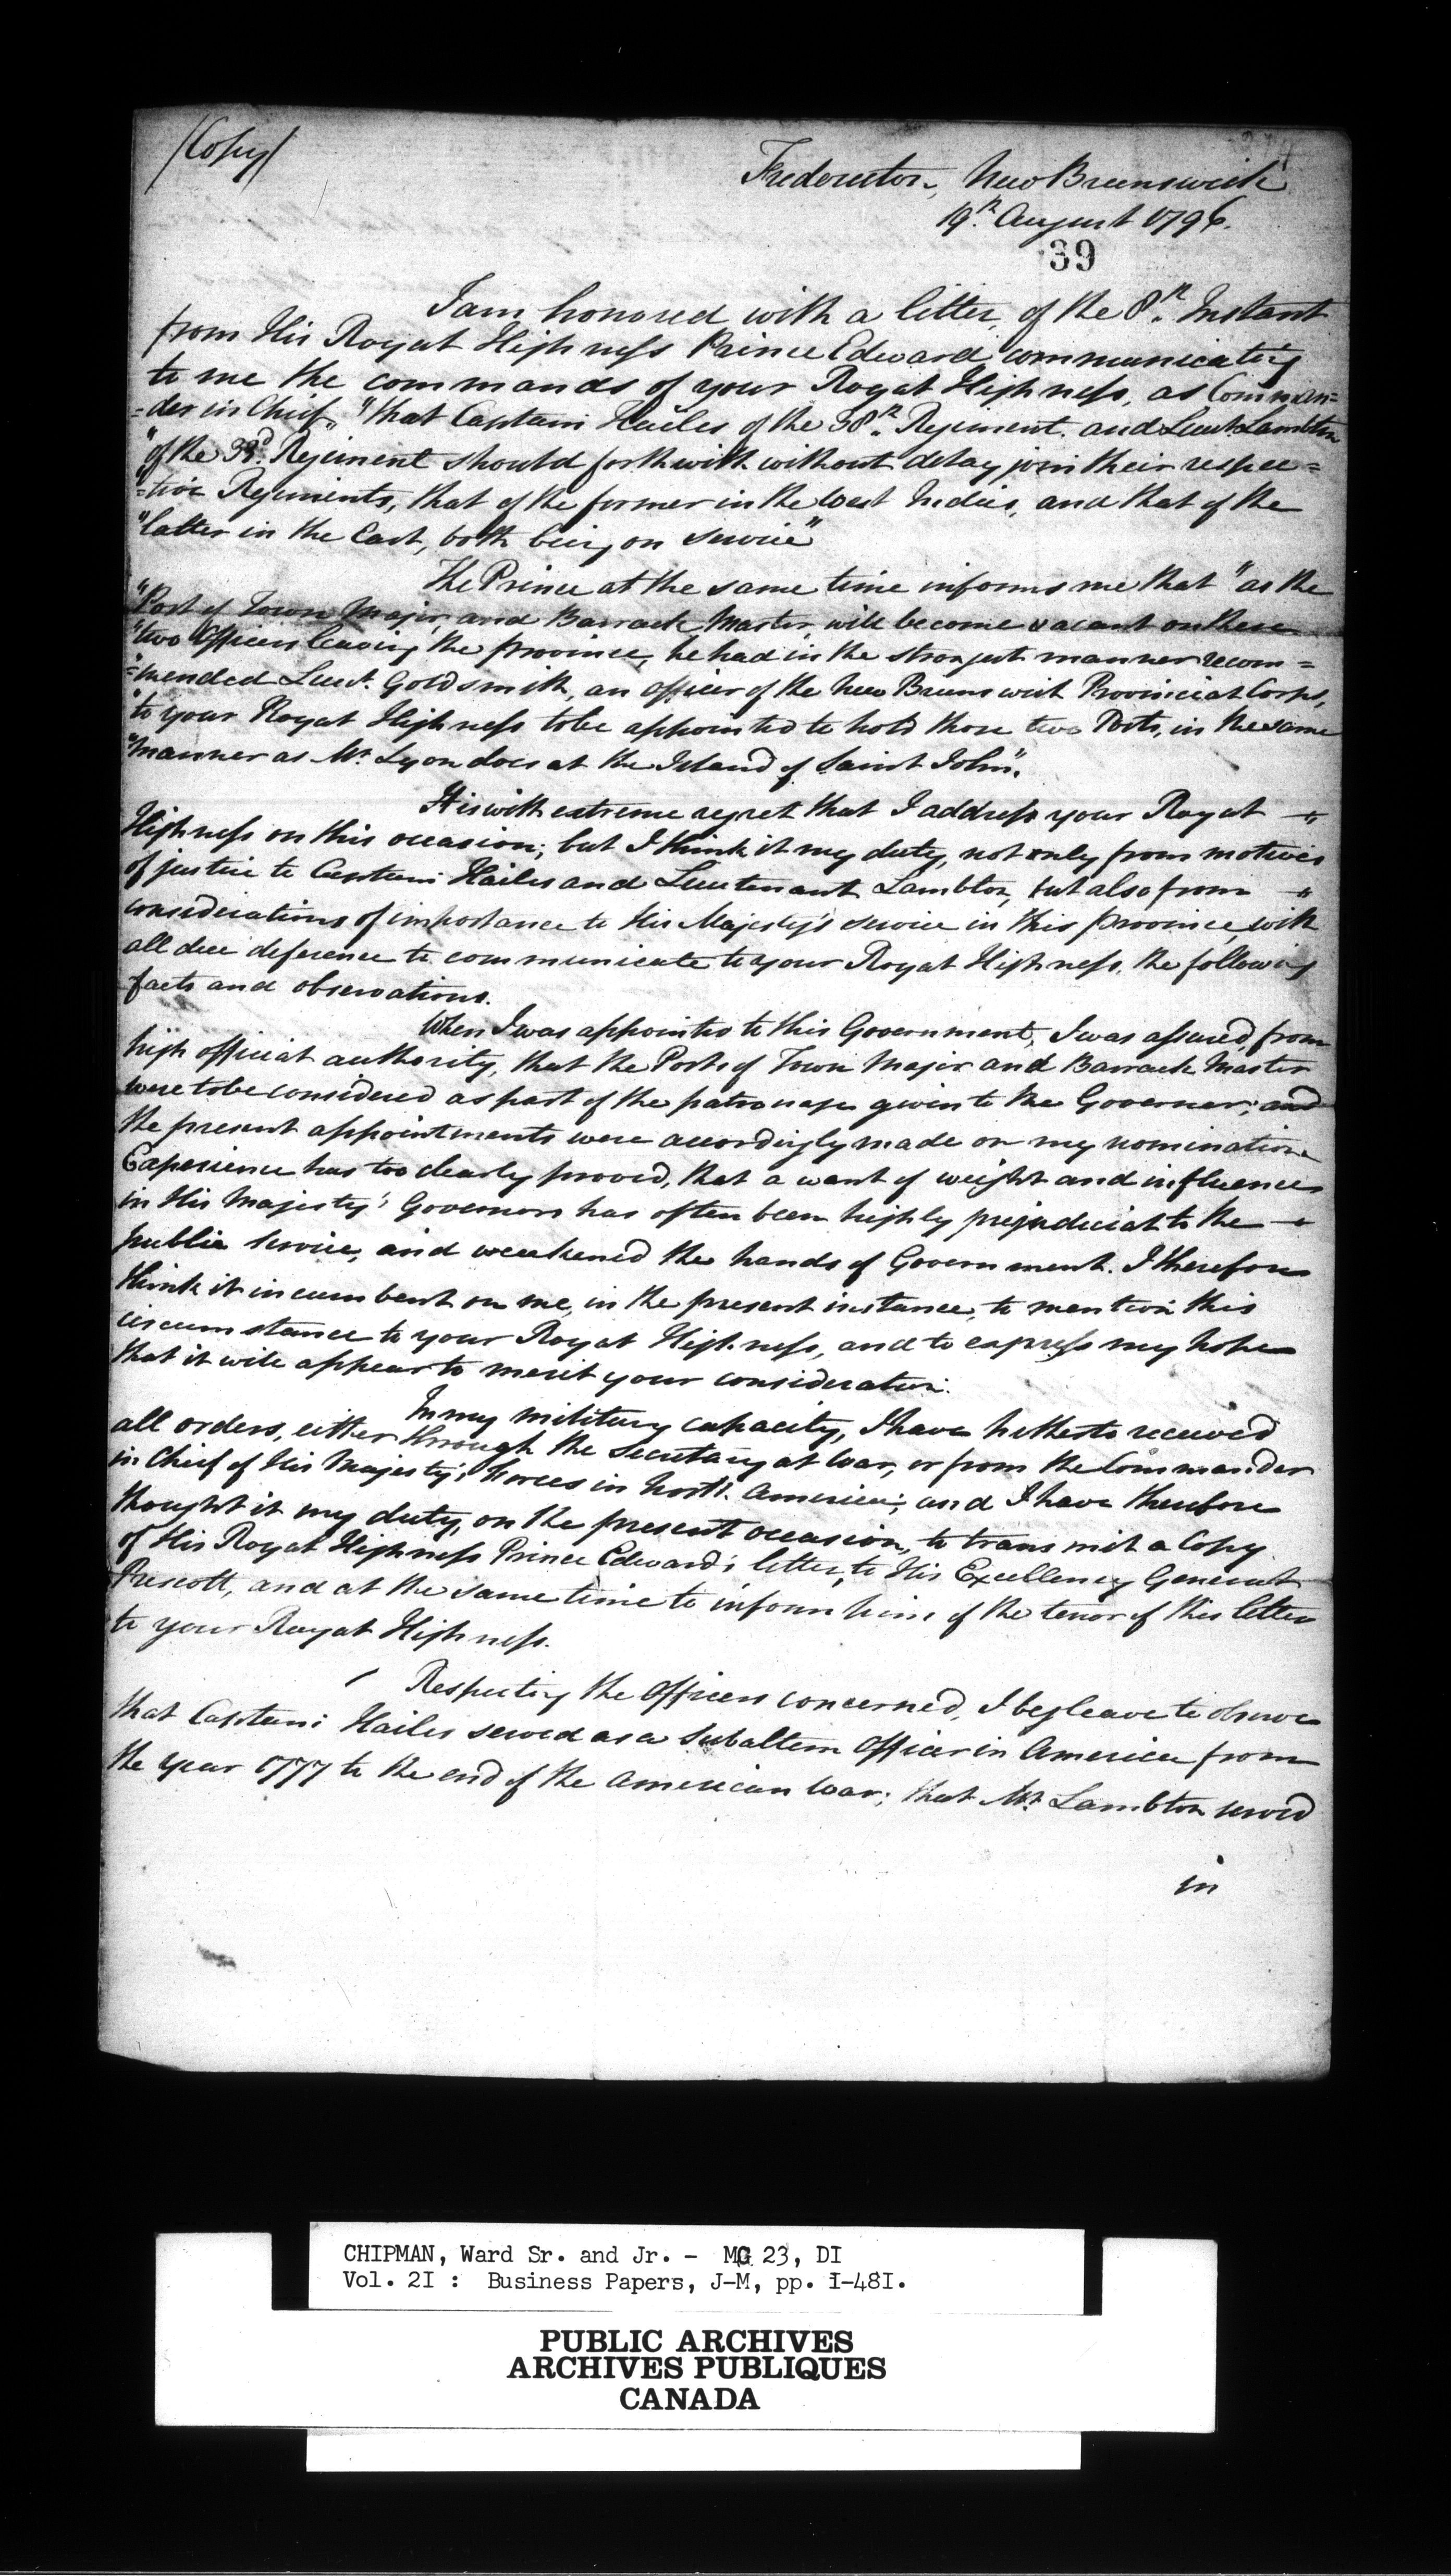 (Copy)
Fredericton, New Brunswick
19th. August 1796.
39
I am honored with a letter, of the 8th. Instant
from His Royal Highness Prince Edward communicating
to me the commands of your Royal Highness, as Comman=
=der in Chief, "that Captain Hailes of the 38th. Regiment. and Lieut. Lambton
"of the 33d. Regiment should forthwith without delay join their respec=
"=tive Regiments, that of the former in the West Indies, and that of the
"latter in the East, both being on service"
The Prince at the same time informs me that "as the
"Post of Town Major, and Barrack Master, will become vacant on these
"two Officers leaving the province, he had in the strongest manner recom=
"=mended Lieut. Goldsmith, an officer of the New Brunswick Provincial Corps,
"to your Royal Highness to be appointed to hold those two Posts, in the same
"manner as Mr. Lyon does at the Island of Saint John".
It is with extreme regret that I address your Royal
Highness on this occasion; but I think it my duty, not only from motives
of justice to Captain Hailes and Lieutenant Lambton, but also from
considerations of importance to His Majesty's service in this province, with
all due deference to communicate to your Royal Highness, the following
facts and observations.
When I was appointed to this Government, I was assured, from
high official authority, that the Posts of Town Major and Barrack Master
were to be considered as part of the patronage given to the Governor; and
the present appointments were accordingly made on my nomination
Experience has too clearly proved, that a want of weight and influence
in His Majesty's Governors has often been highly prejudicial to the
public service, and weakened the hands of Government. I therefore
think it incumbent on me, in the present instance, to mention this
circumstance to your Royal Highness, and to express my hope
that it will appear to merit your consideration.
In my military capacity, I have hitherto received
all orders, either through the Secretary at War, or from the Commander
in Chief of His Majesty's Forces in North America; and I have therefore
thought it my duty, on the present occasion, to transmit a Copy
of His Royal Highness Prince Edward's letter, to His Excellency General
Prescott, and at the same time to inform him of the tenor of this letter
to your Royal Highness.
Respecting the Officers concerned, I beg leave to observe
that Captain Hailes served as a Subaltern Officer in America from
the year 1777 to the end of the American War; that Mr. Lambton served
in
CHIPMAN, Ward Sr. and Jr. - MG 23, DI
Vol. 21 : Business Papers, J-M, pp. 1-481.
PUBLIC ARCHIVES
ARCHIVES PUBLIQUES
CANADA